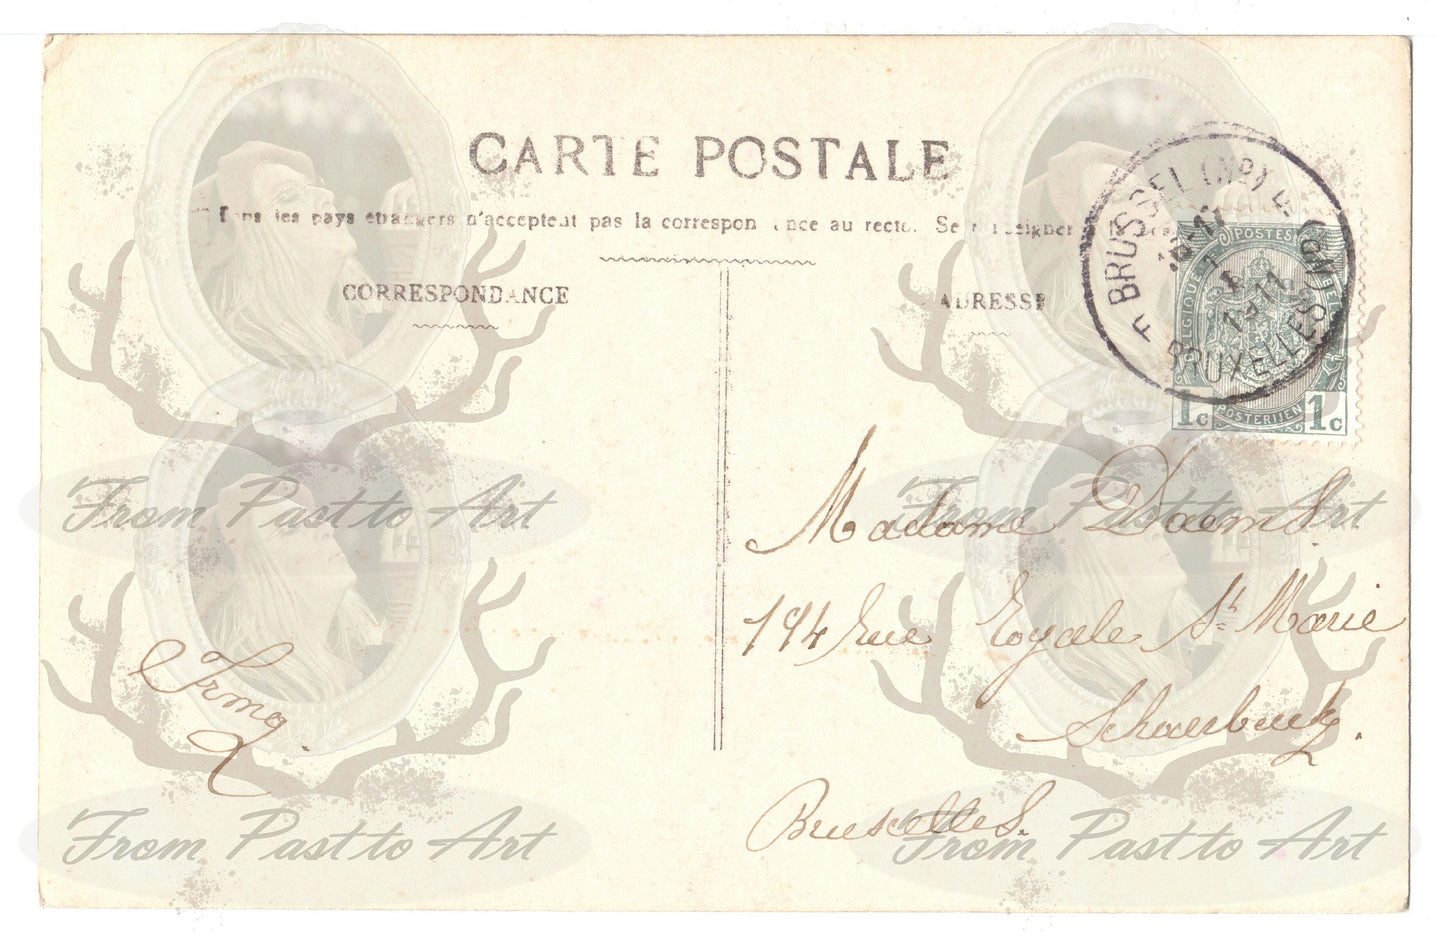 CARTE POSTALE
Tous les pays étrangers n'acceptent pas la correspondance au recto. Se renseigner à la
CORRESPONDANCE
ADRESSE
F BRUSSEL (ND) F
BRUXELLES (ND)
POSTES
BELGIQUE
POSTERIJEN
1c 1c
Madame Daems.
194 Rue Royale St Marie
Schaerbeek.
Bruxelles.
Irma
From Past to Art From Past to Art
From Past to Art From Past to Art